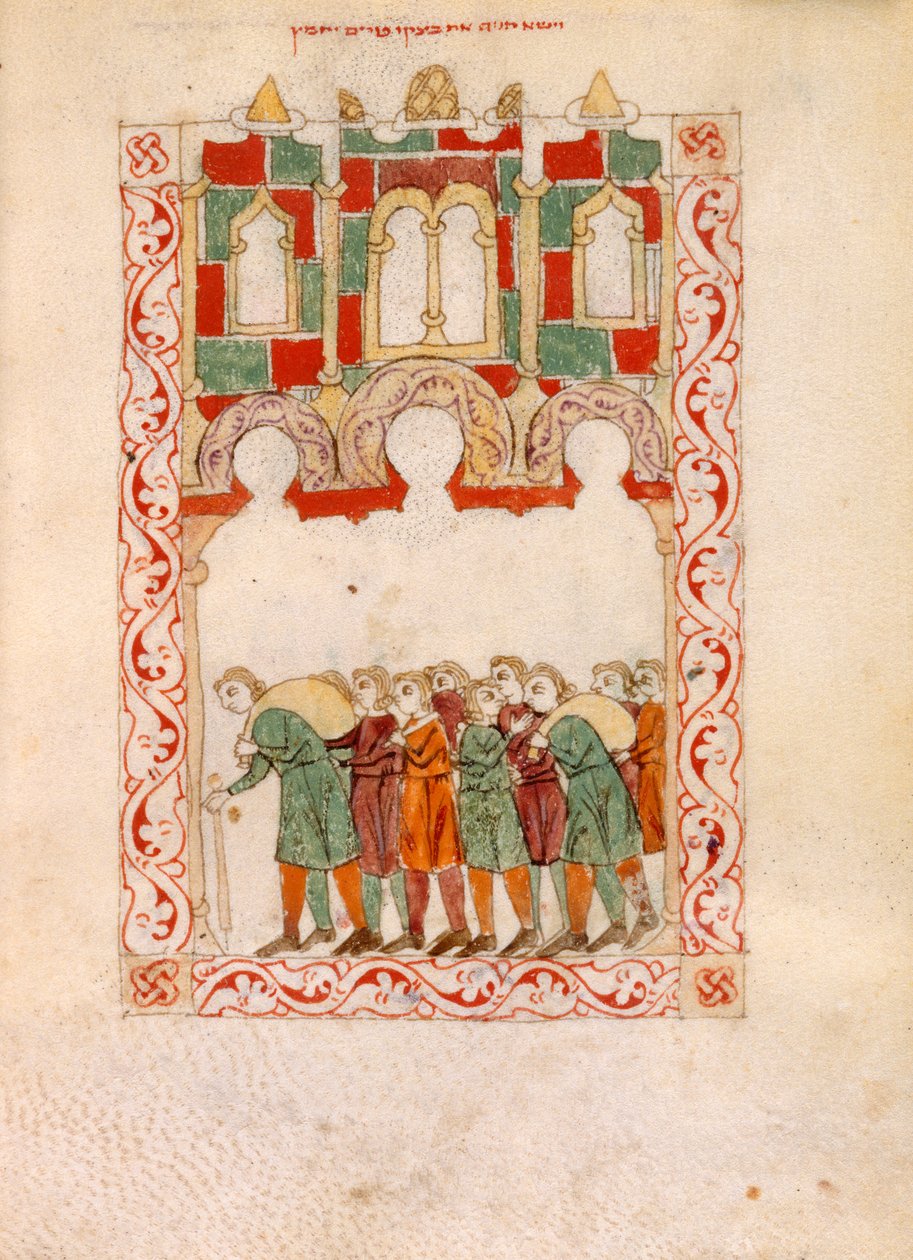 וישא העם את בצקו טרם יחמץ